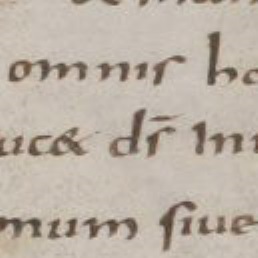 omnis ho
uc& ds̄ Ini
mum siue